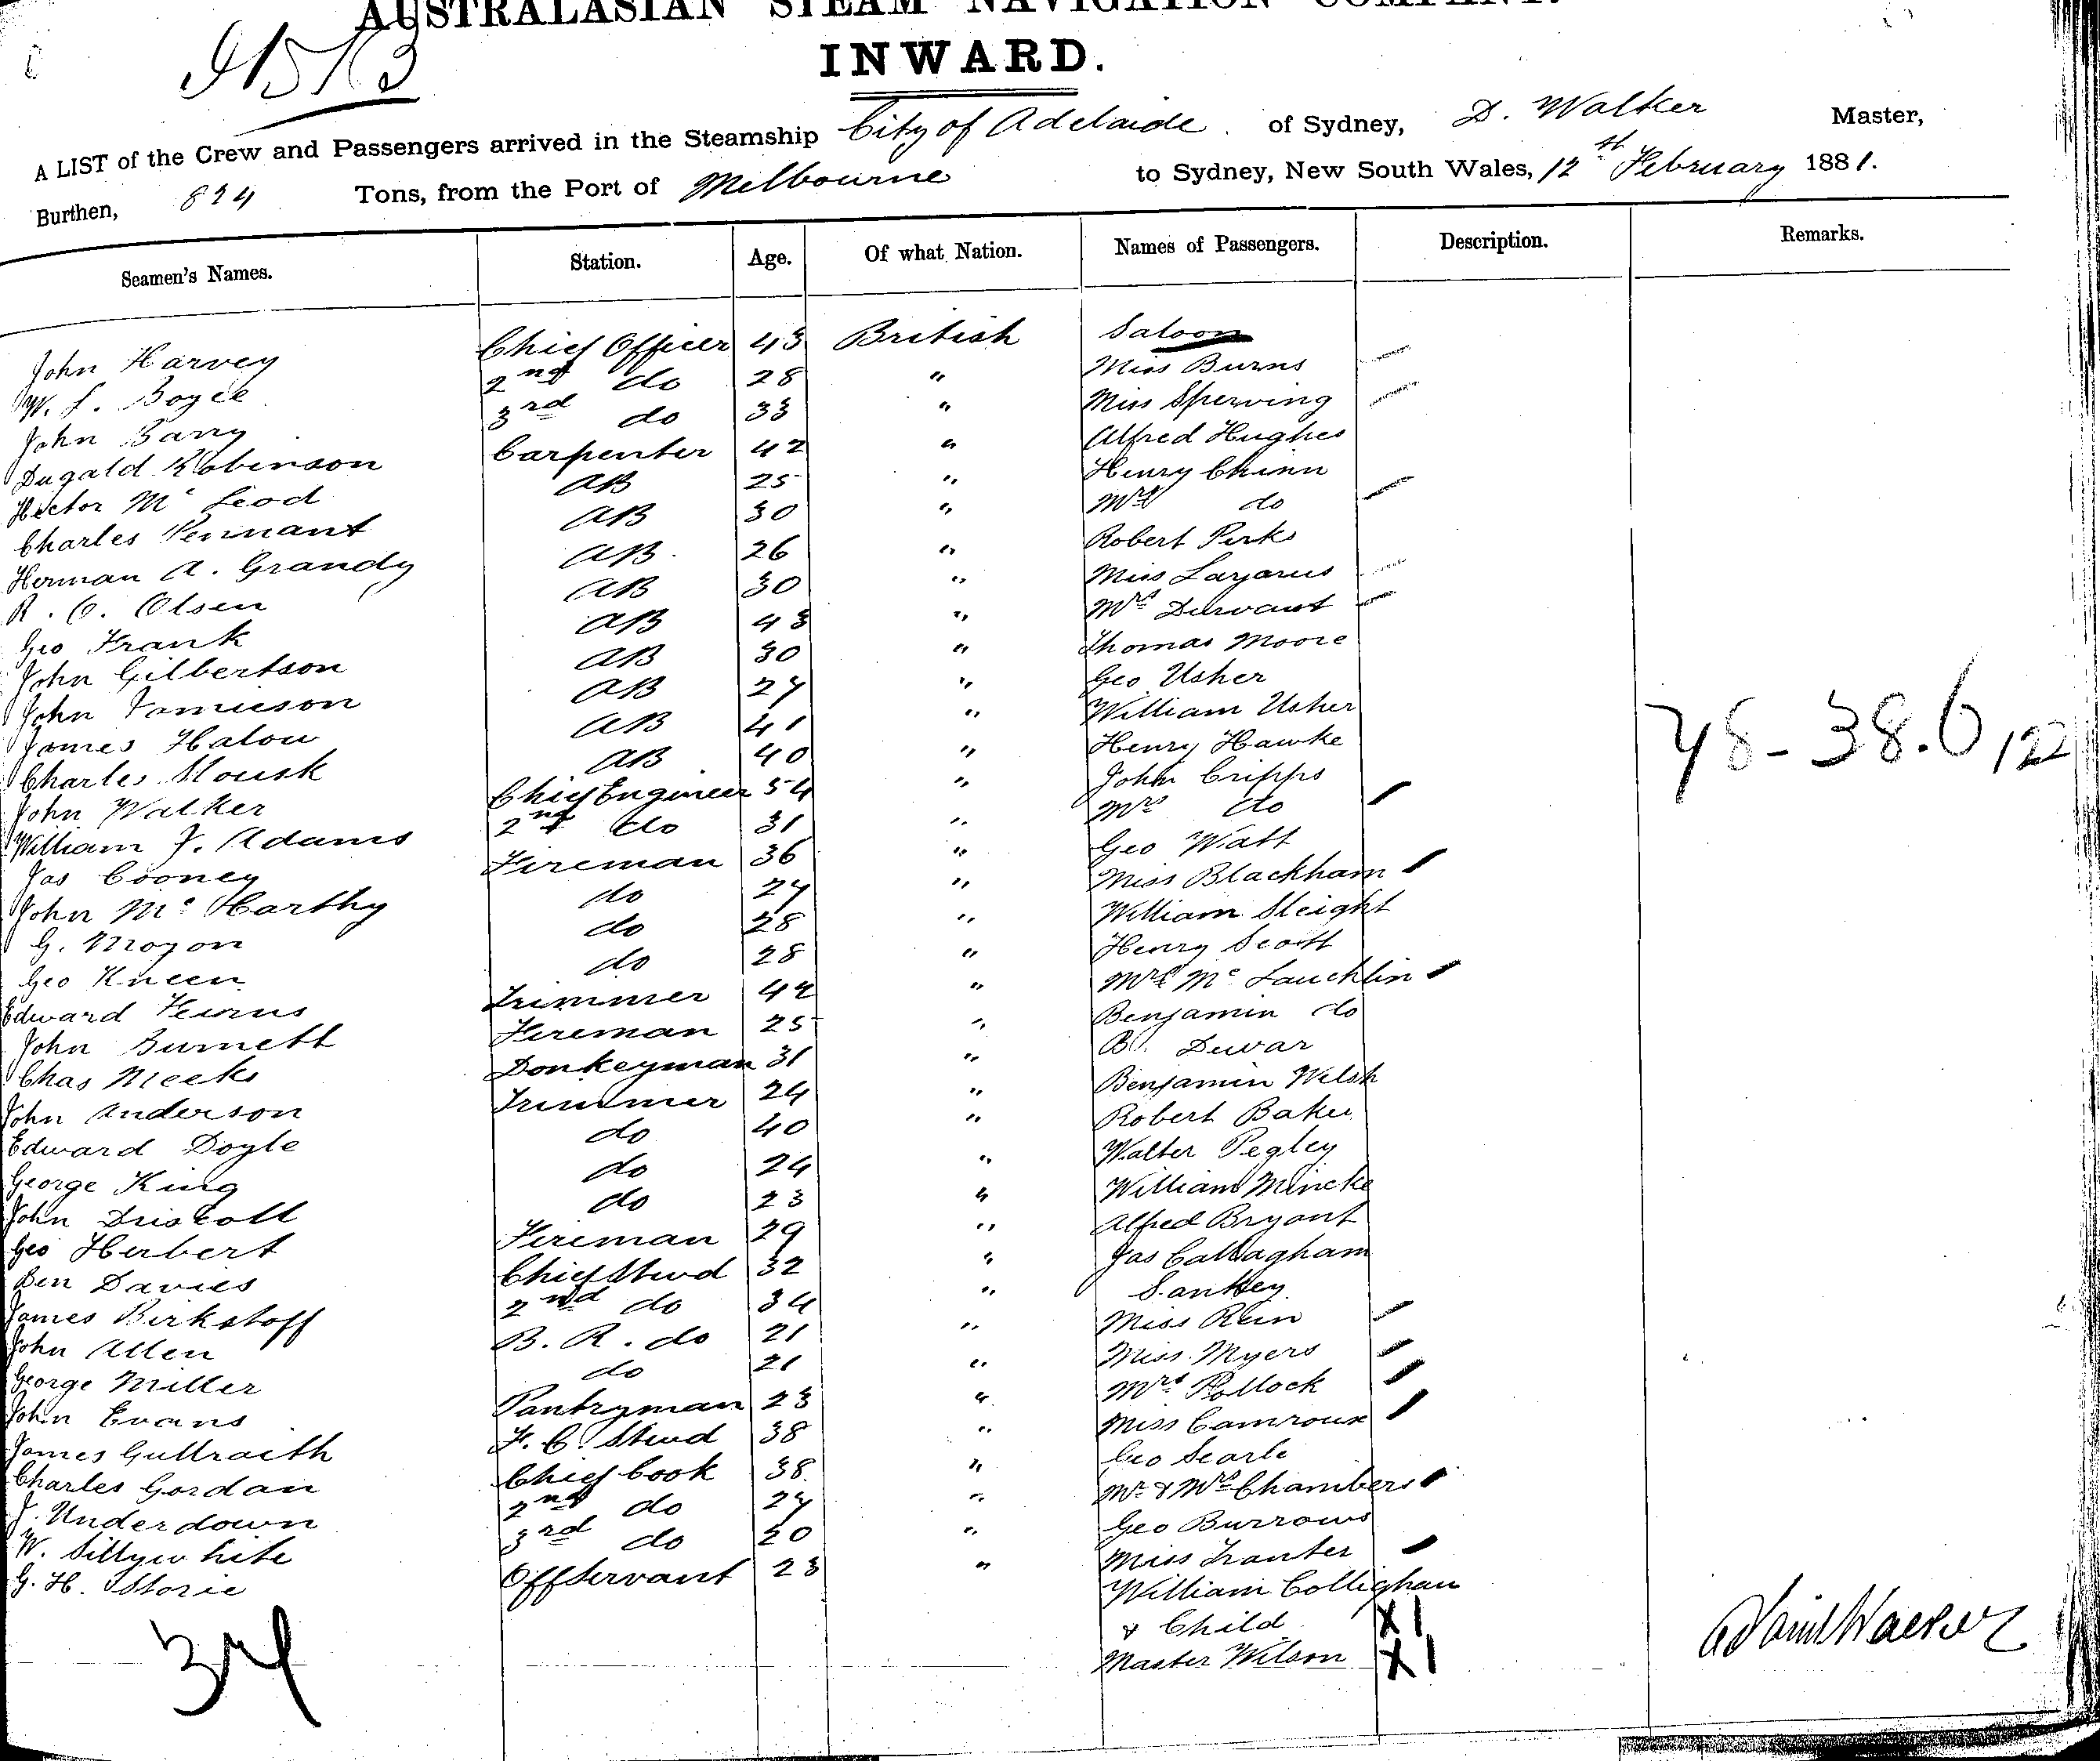 AUSTRALASIAN STEAM NAVIGATION COMPANY.
INWARD.
A LIST of the Crew and Passengers arrived in the Steamship City of Adelaide of Sydney, D. Walker Master,
Burthen, 824 Tons, from the Port of Melbourne to Sydney, New South Wales, 12th February 1881.
Seamen's Names. Station. Age. Of what Nation. Names of Passengers. Description. Remarks.
John Harvey Chief Officer 43 British Saloon
W. L. Bogie 2nd do 28 " Miss Burns
John Barry 3rd do 33 " Miss Sperving
Dugald Robinson Carpenter 42 " Alfred Hughes
Hector Mc Leod AB 25 " Henry Chinn
Charles Pennant AB 30 " Mrs do
Herman A. Grandy AB 26 " Robert Perks
R. C. Olsen AB 30 " Miss Lazarus
Geo Frank AB 43 " Mrs Durant
John Gilbertson AB 30 " Thomas Moore
John Jamieson AB 27 " Geo Usher
James Halow AB 41 " William Usher
Charles AB 40 " Henry Hawke
John Walker Chief Engineer 54 " John Cripps
William J. Adams 2nd do 31 " Mrs do
Jas Cooney Fireman 36 " Geo Watt
John Mc Carthy do 27 " Miss Blackham
G. Mogon do 28 " William Sleight
Geo Kneen do 28 " Henry Scott
Edward Trimmer 42 " Mrs Mc Lauchlin
John Burnett Fireman 25 " Benjamin do
Chas Meeks Donkeyman 31 " B. Dewar
John Anderson Trimmer 24 " Benjamin Welsh
Edward Doyle do 40 " Robert Baker
George King do 24 " Walter Pegley
John Driscoll do 23 " William Mincke
Geo Herbert Fireman 29 " Alfred Bryant
Ben Davies Chief Stwd 32 " Jas Callagham
James Birkstoff 2nd do 34 " Sankey
John Allen B. R. do 21 " Miss Rein
George Miller do 21 " Miss Myers
John Evans Pantryman 23 " Mrs Pollock
James Gullraith F. C. Stwd 38 " Miss Camroux
Charles Gordan Chief Cook 38 " Geo Searle
J. Underdown 2nd do 27 " Mr & Mrs Chambers
W. Sillywhite 3rd do 20 " Geo Burrows
G. H. Storie Off Servant 23 " Miss Tranter
William Collighan
& Child X1
Master Wilson X1
48-38.6,122
37